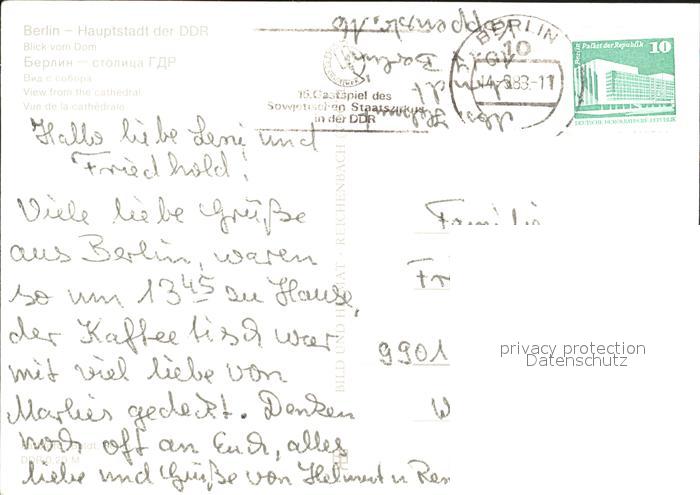 Berlin – Hauptstadt der DDR
Blick vom Dom
Берлин – столица ГДР
Вид с собора
View from the cathedral
Vue de la cathédrale
15. Gastspiel des
Sowjetischen Staatszirkus
in der DDR
BERLIN
10
83.-11
Berlin Palast der Republik 10
DEUTSCHE DEMOKRATISCHE REPUBLIK
Abs.
Berlin
Hallo liebe Leni und
Friedhold!
Viele liebe Grüße
aus Berlin, waren
so um 13 45 zu Hause,
der Kaffeetisch war
mit viel liebe von
Marlies gedeckt. Denken
noch oft an Euch, alles
liebe und Grüße von Helmut u Ren
BILD UND HEIMAT · REICHENBACH
Familie
Fr
9901
W
privacy protection
Datenschutz